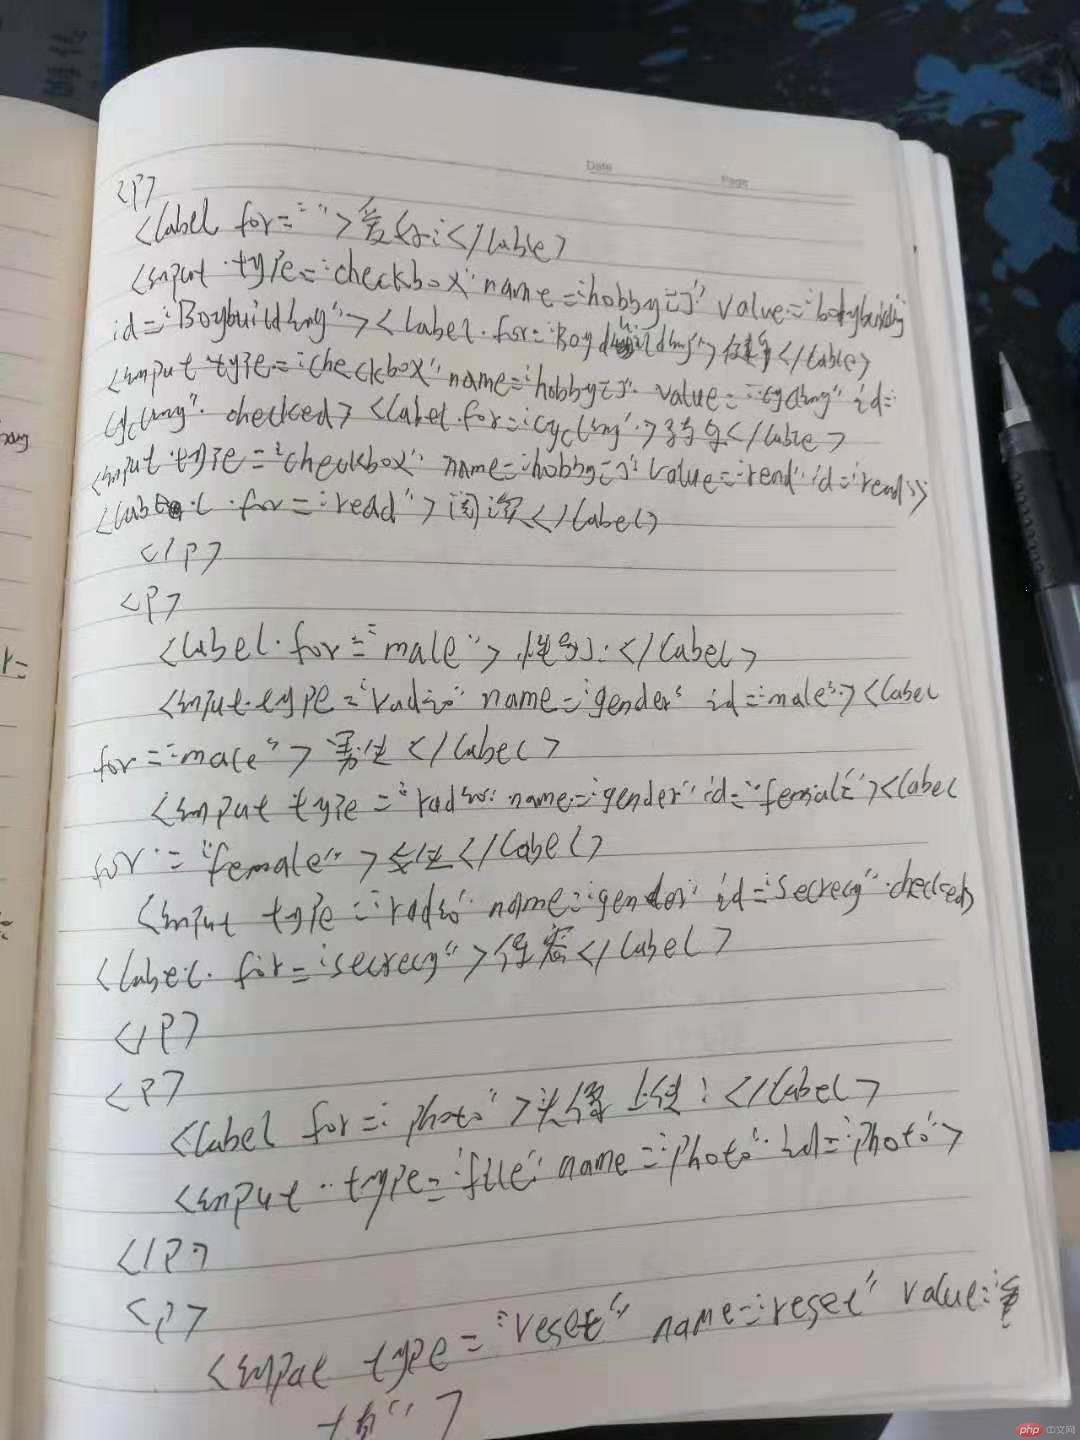 Date Page
<P>
<label for="">爱好:</lable>
<input type="checkbox" name="hobby[]" value="bodybuilding"
id="Boybuilding"><label for="Boybuilding">健身</lable>
<input type="checkbox" name="hobby[]" value="cycling" id=
cycling" checked> <label for="cycling">骑车</lable>
<input type="checkbox" name="hobby[]" value="read" id="read">
<label for="read">阅读</label>
</P>
<P>
<label for="male">性别:</label>
<input type="radio" name="gender" id="male"><label
for="male">男性</label>
<input type="radio" name="gender" id="female"><label
for="female">女性</label>
<input type="radio" name="gender" id="secrecy" checked>
<label for="secrecy">保密</label>
</P>
<P>
<label for="photo">头像上传:</label>
<input type="file" name="photo" id="photo">
</P>
<P>
<input type="reset" name="reset" value="重
填">
php 中文网